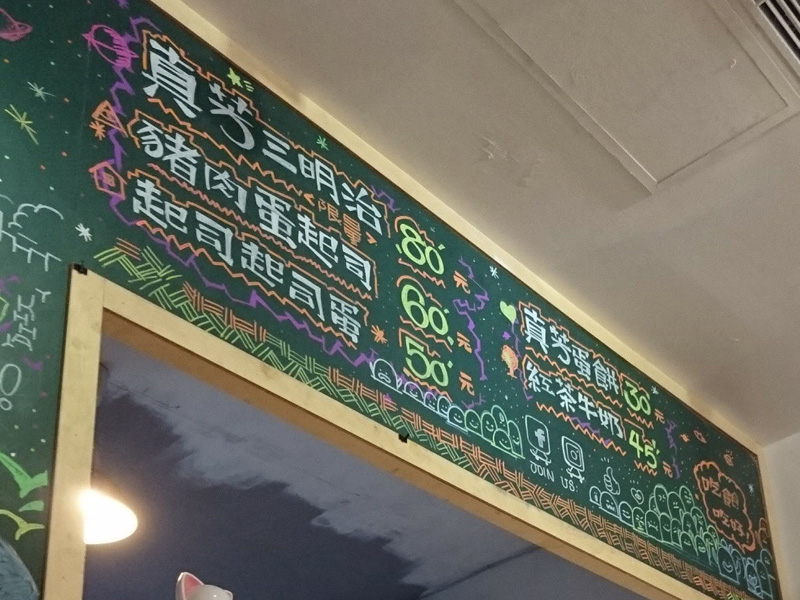 真芳三明治 80元
<限量>
豬肉蛋起司 60元
起司起司蛋 50元
真芳蛋餅 30元
紅茶牛奶 45元
JOIN US!
吃飽
吃好